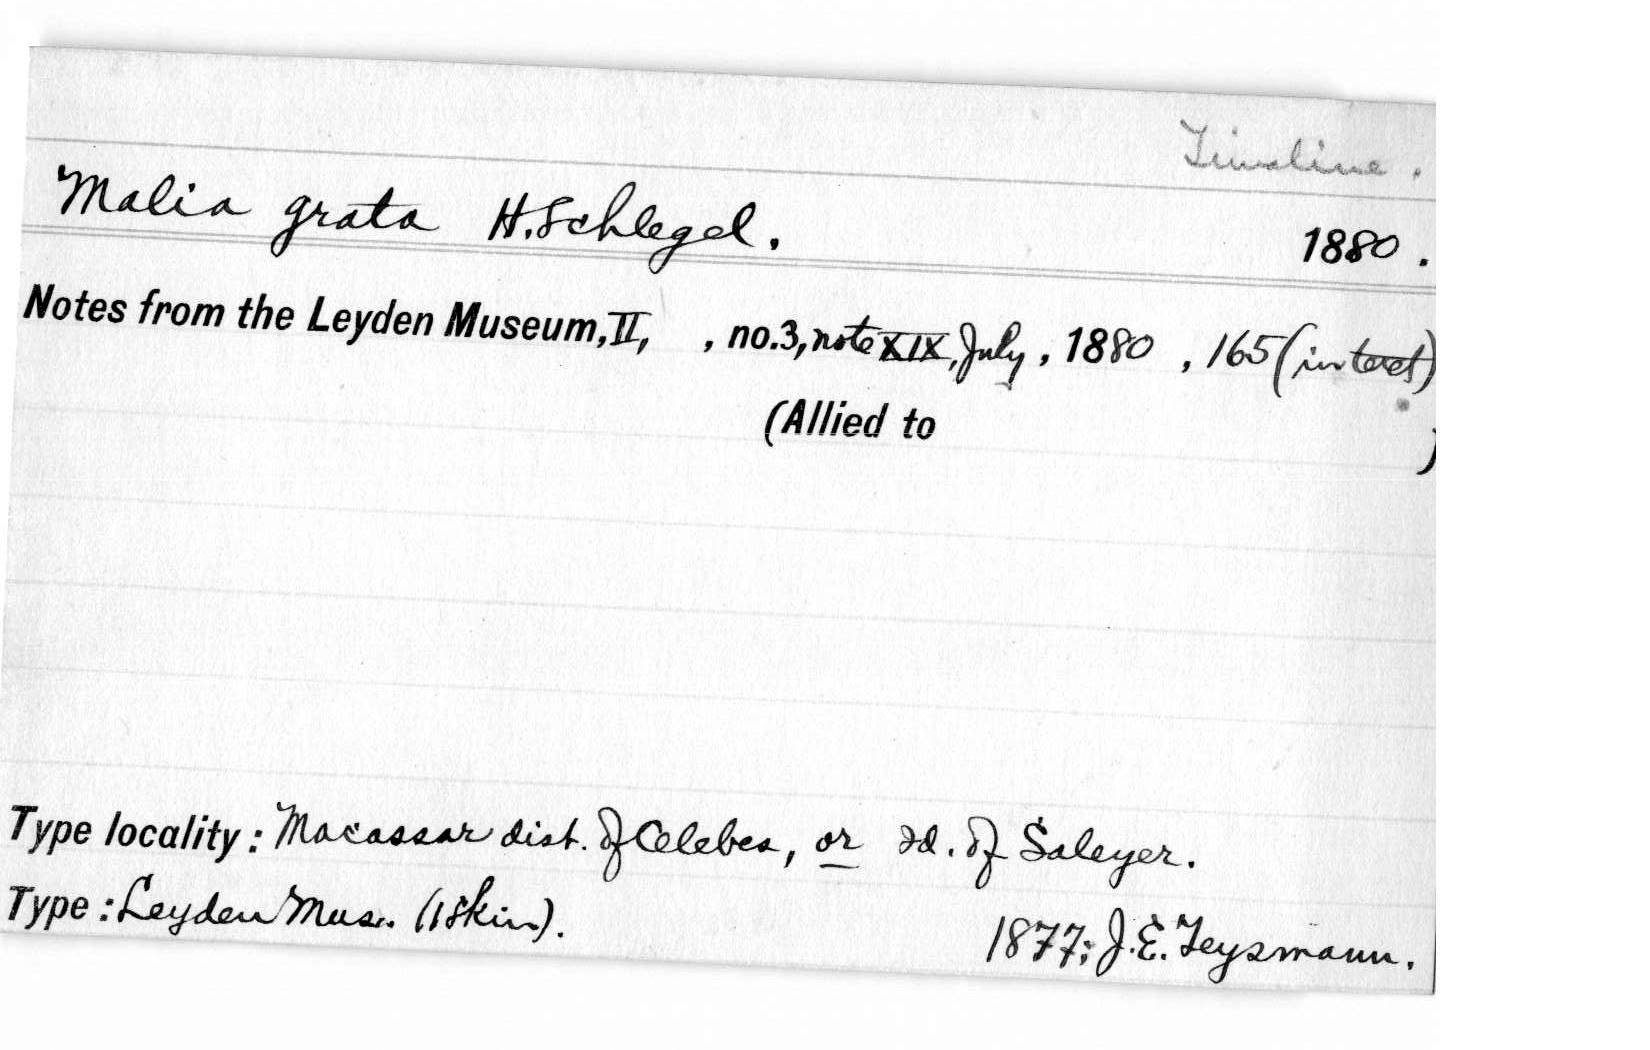 Timaline.
Malia grata H. Schlegel. 1880.
Notes from the Leyden Museum, II, , no. 3, note XIX, July, 1880, 165 (in text)
(Allied to )
Type locality: Macassar dist. of Celebes, or Id. of Saleyer.
Type: Leyden Mus. (1 skin). 1877; J. E. Teysmann.